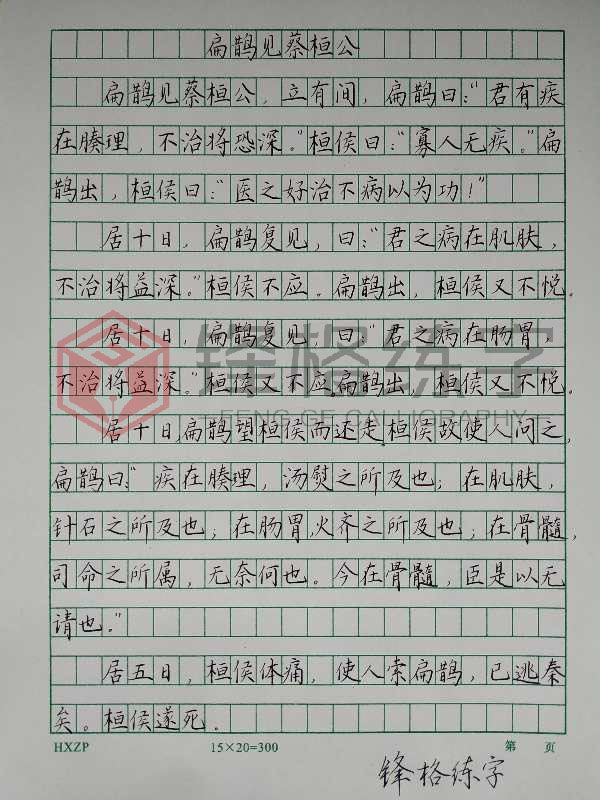 扁鹊见蔡桓公
扁鹊见蔡桓公，立有间，扁鹊曰：“君有疾
在腠理，不治将恐深。”桓侯曰：“寡人无疾。”扁
鹊出，桓侯曰：“医之好治不病以为功！”
居十日，扁鹊复见，曰：“君之病在肌肤，
不治将益深。”桓侯不应。扁鹊出，桓侯又不悦。
居十日，扁鹊复见，曰：“君之病在肠胃，
不治将益深。”桓侯又不应。扁鹊出，桓侯又不悦。
锋格练字
FENG GE CALLIGRAPHY
居十日，扁鹊望桓侯而还走。桓侯故使人问之，
扁鹊曰：“疾在腠理，汤熨之所及也；在肌肤，
针石之所及也；在肠胃，火齐之所及也；在骨髓，
司命之所属，无奈何也。今在骨髓，臣是以无
请也。”
居五日，桓侯体痛，使人索扁鹊，已逃秦
矣。桓侯遂死。
HXZP 15×20=300 第 页
锋格练字